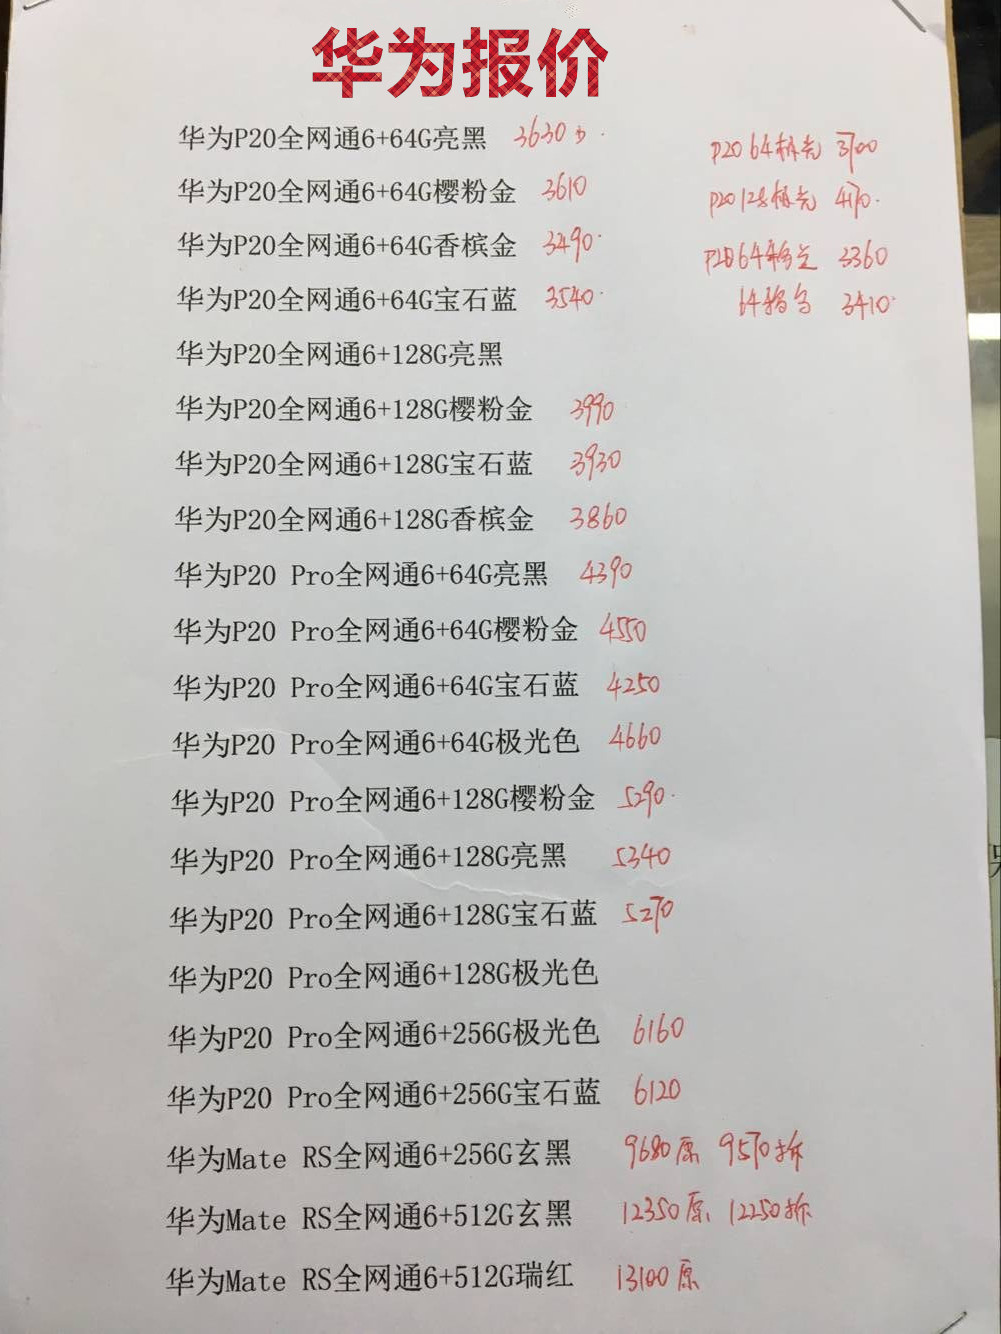 华为报价
华为P20全网通6+64G亮黑 3630
P20 64极光 3700
华为P20全网通6+64G樱粉金 3610
P20 128极光 4170
华为P20全网通6+64G香槟金 3490
P20 64移 3360
华为P20全网通6+64G宝石蓝 3540
64移 3410
华为P20全网通6+128G亮黑
华为P20全网通6+128G樱粉金 3990
华为P20全网通6+128G宝石蓝 3930
华为P20全网通6+128G香槟金 3860
华为P20 Pro全网通6+64G亮黑 4390
华为P20 Pro全网通6+64G樱粉金 4550
华为P20 Pro全网通6+64G宝石蓝 4250
华为P20 Pro全网通6+64G极光色 4660
华为P20 Pro全网通6+128G樱粉金 5290
华为P20 Pro全网通6+128G亮黑 5340
华为P20 Pro全网通6+128G宝石蓝 5270
华为P20 Pro全网通6+128G极光色
华为P20 Pro全网通6+256G极光色 6160
华为P20 Pro全网通6+256G宝石蓝 6120
华为Mate RS全网通6+256G玄黑 9680原 9570拆
华为Mate RS全网通6+512G玄黑 12350原 12250拆
华为Mate RS全网通6+512G瑞红 13100原